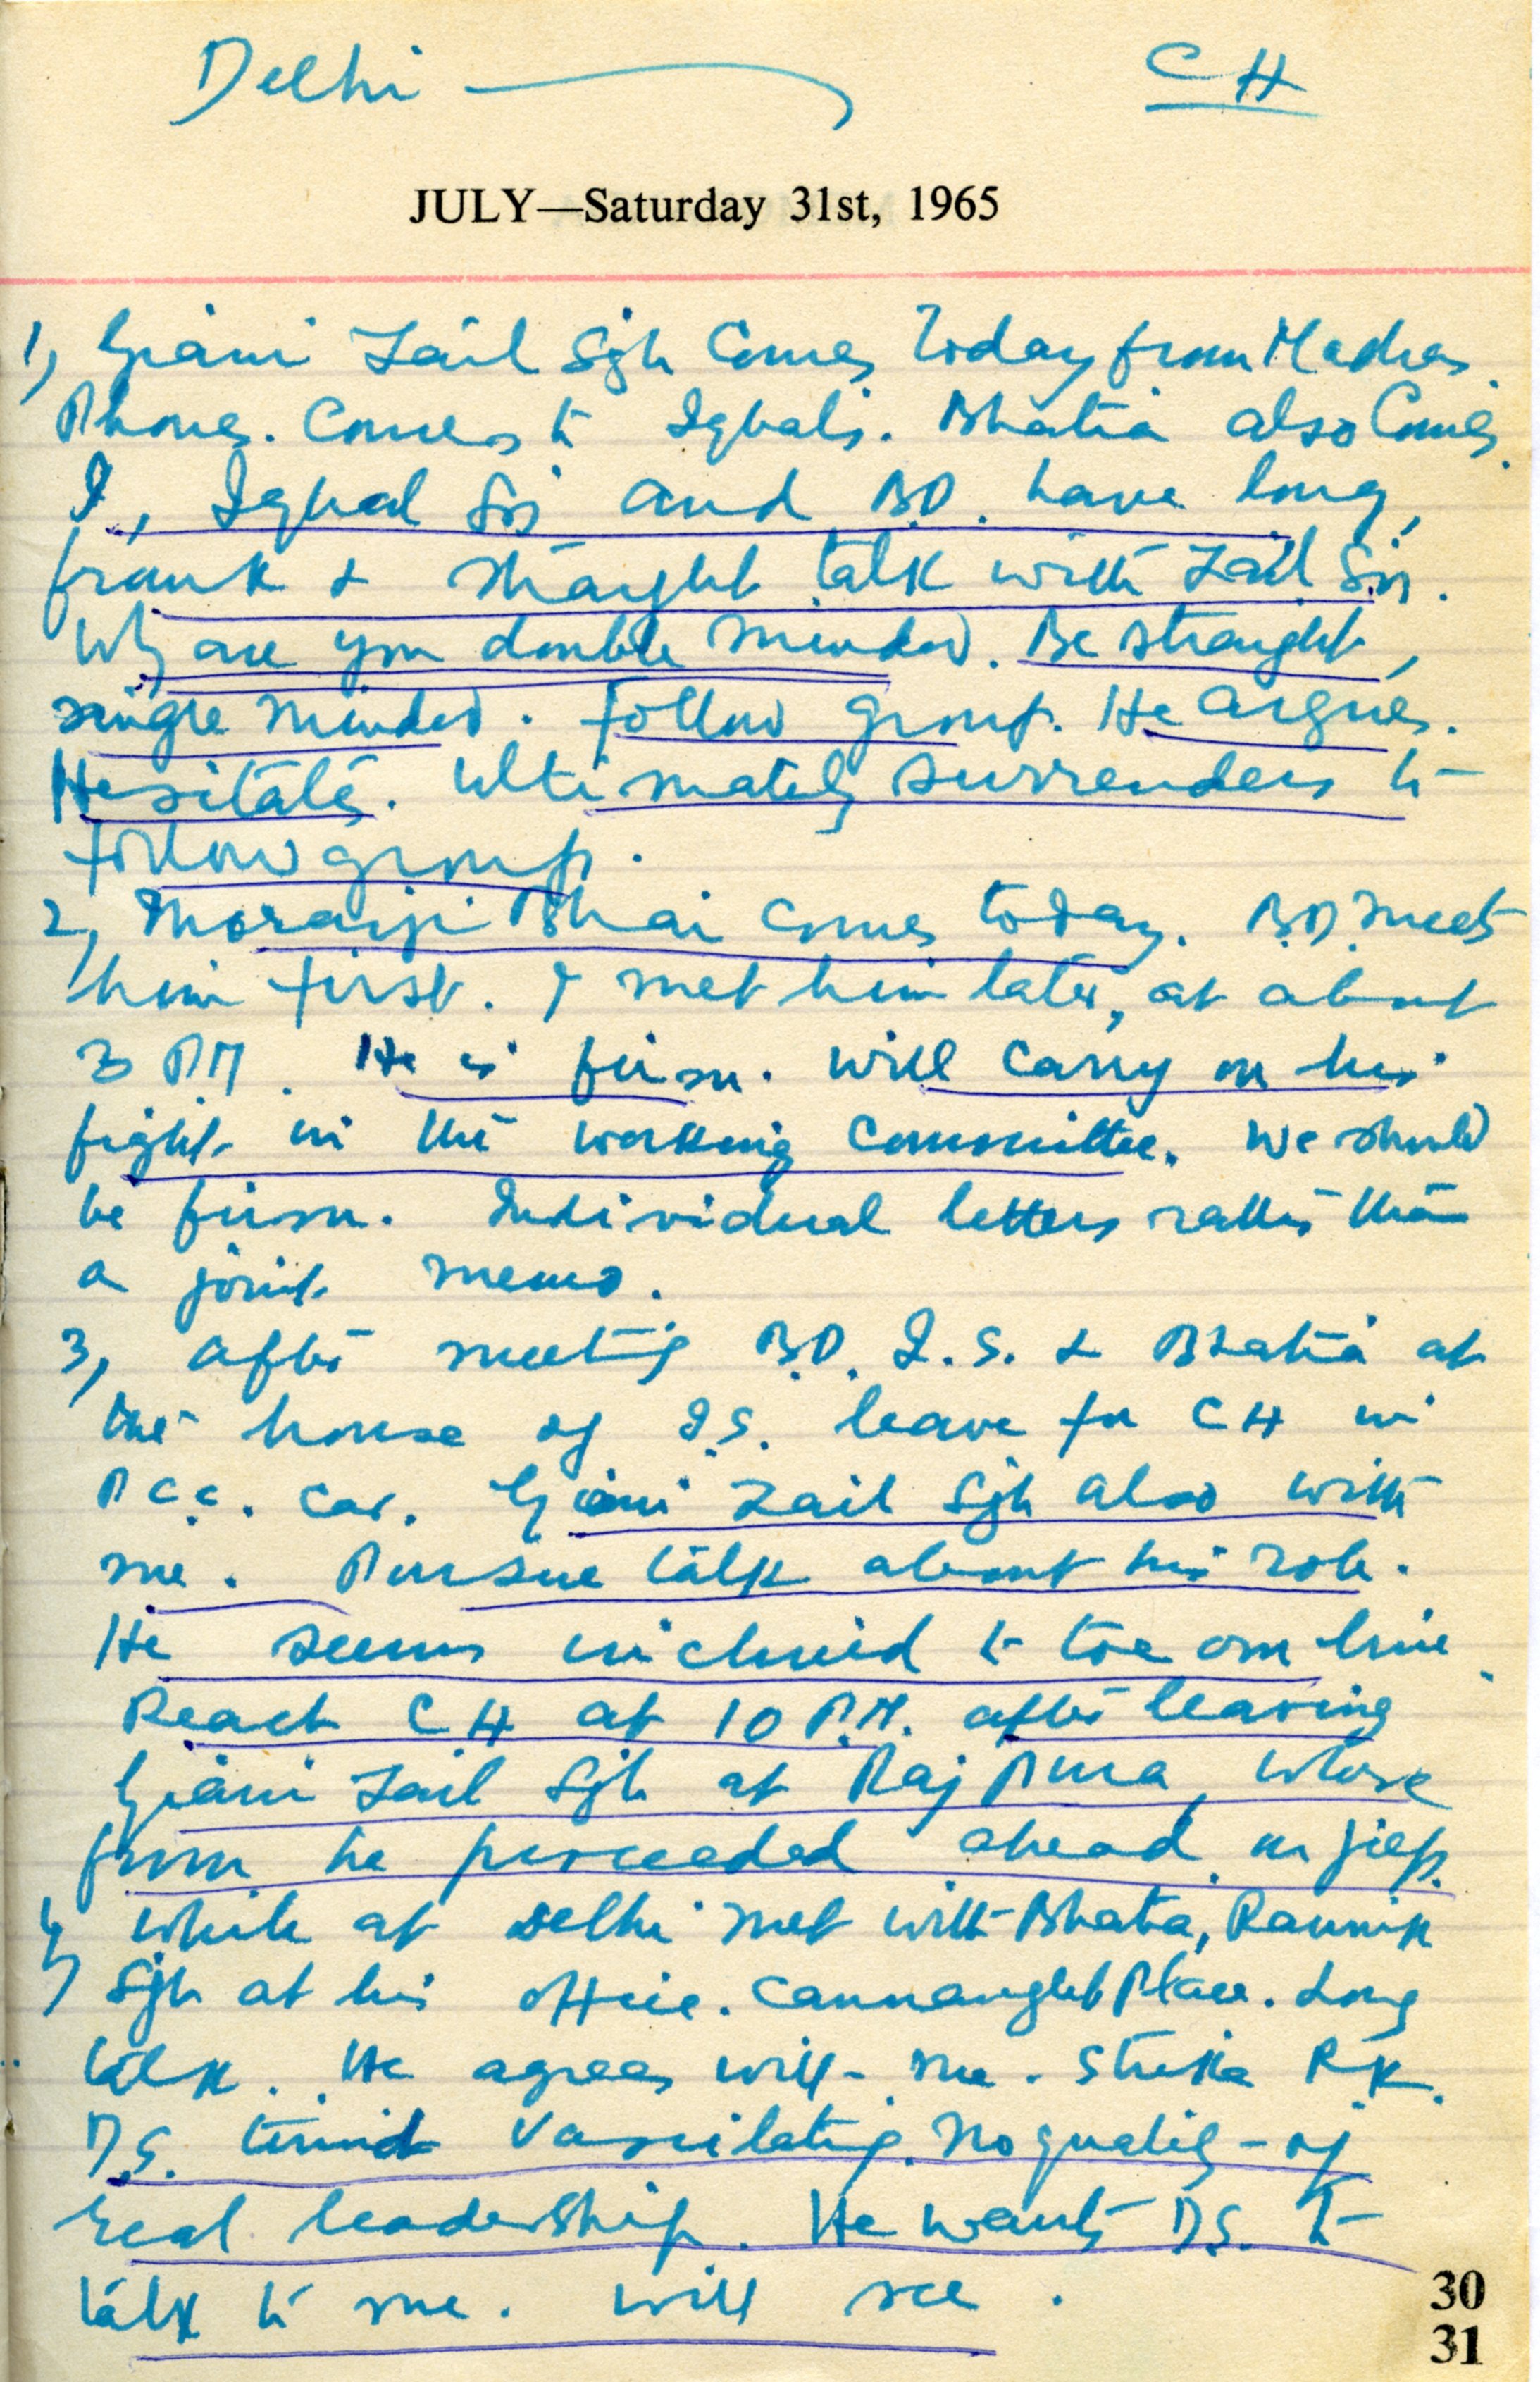 Delhi — CH
JULY—Saturday 31st, 1965
1, Giani Zail Sgh Comes Today from Madras.
Phones. Comes to Iqbal's. Bhatia also Comes.
I, Iqbal Sn and B.D. have long,
frank & straight talk with Zail Sn.
Why are you double minded. Be straight,
single minded. Follow group. He argues.
Hesitates. Ultimately surrenders to
follow group.
2, Morarji Bhai comes today. B.D. meets
him first. I met him later, at about
3 PM. He is firm. Will carry on his
fight in the working committee. We should
be firm. Individual letters rather than
a joint memo.
3, After meeting B.D. I.S. & Bhatia at
the house of I.S. leave for CH in
P.C.C. Car. Giani Zail Sgh also with
me. Pursue talk about his role.
He seems inclined to toe our line.
Reach CH at 10 P.M. after leaving
Giani Zail Sgh at Rajpura, where
from he proceeded ahead in jeep.
4, While at Delhi met with Bhatia, Raunik
Sgh at his office. Cannaught Place. Long
talk. He agrees with me. R.K.
D.S. timid Vascilating. No quality of
real leadership. He wants D.S. to
talk to me. Will see.
30
31